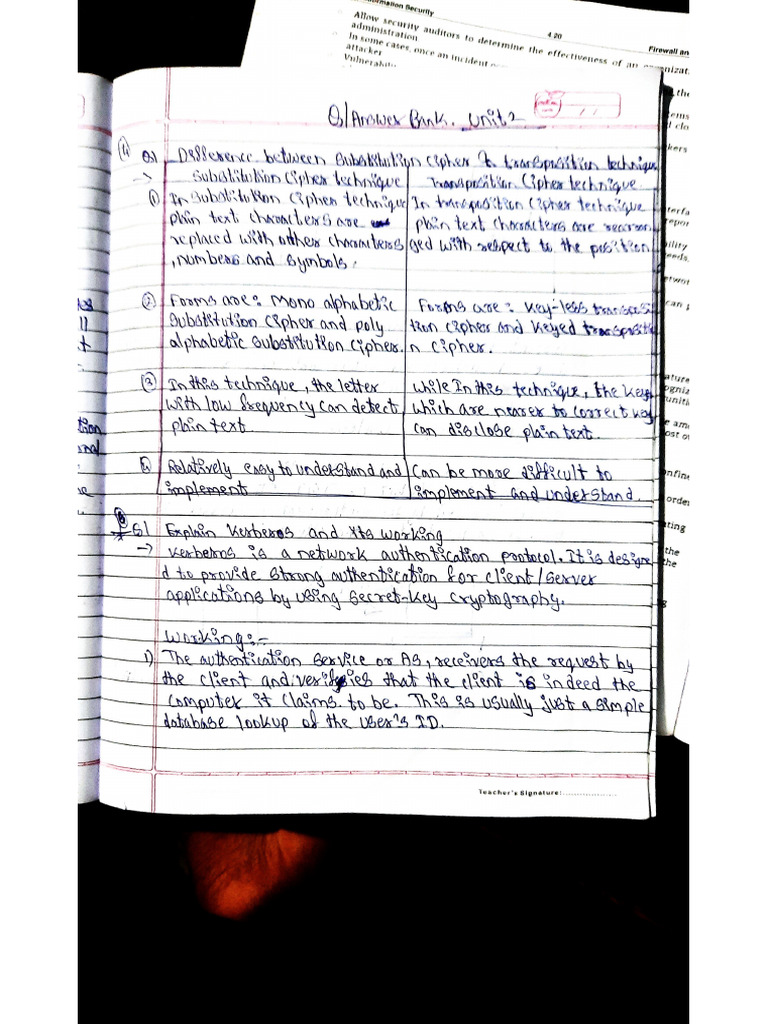 Information Security
4.20
Firewall an
Allow security auditors to determine the effectiveness of an organizat
administration
In some cases, once an incident
attacker
Vulnerabili
Q/Answer Bank. Unit 2
(4) Q1 Difference between substitution cipher & transposition technique
→ Substitution Cipher technique | Transposition Cipher technique
① In substitution Cipher technique | In transposition Cipher technique
plain text characters are | plain text characters are rearran
replaced with other characters | ged with respect to the position
, numbers and symbols.
② Forms are: Mono alphabetic | Forms are: Key-less transposi
substitution cipher and poly | tion cipher and keyed transpositi
alphabetic substitution cipher. | n cipher.
③ In this technique, the letter | while In this technique, the keys
with low frequency can detect | which are nearer to correct key
plain text. | can disclose plain text.
Relatively easy to understand and | Can be more difficult to
implement | implement and understand
5) Explain Kerberos and Its working
→ Kerberos is a network authentication protocol. It is designe
d to provide strong authentication for client/server
applications by using secret-key cryptography.
Working:-
1) The authentication service or AS, receivers the request by
the client and verifies that the client is indeed the
computer it claims to be. This is usually just a simple
database lookup of the user's ID.
Teacher's Signature: